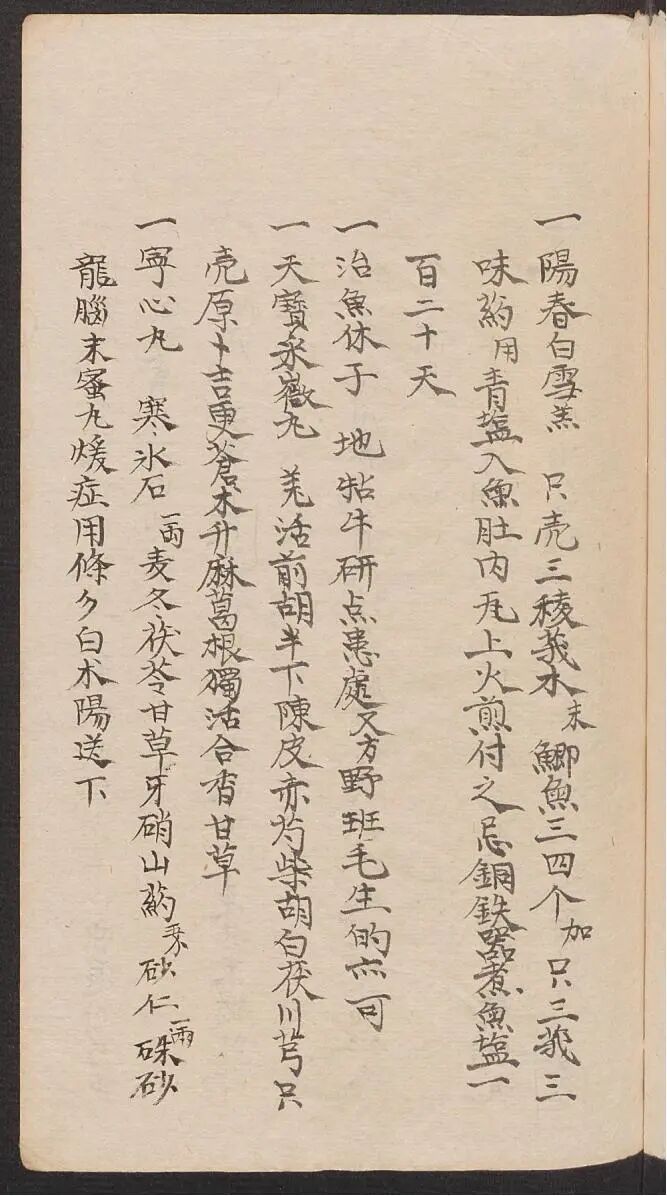 一陽春白雪羔 只壳三稜莪水末鯽魚三四个加只三莪三
味药用青塩入魚肚内瓦上火煎付之忌銅鉄器煮魚塩一
百二十天
一治魚休子 地牯牛研点患處又方野班毛生的亦可
一天寶永嶽九 羌活前胡半下陳皮赤芍柴胡白茯川芎只
壳原卜吉更蒼术升麻葛根獨活合香甘草
一寧心丸 寒氷石一両麦冬茯苓甘草牙硝山药砂仁一両硃砂
龍腦末蜜九煖症用條夕白术陽送下